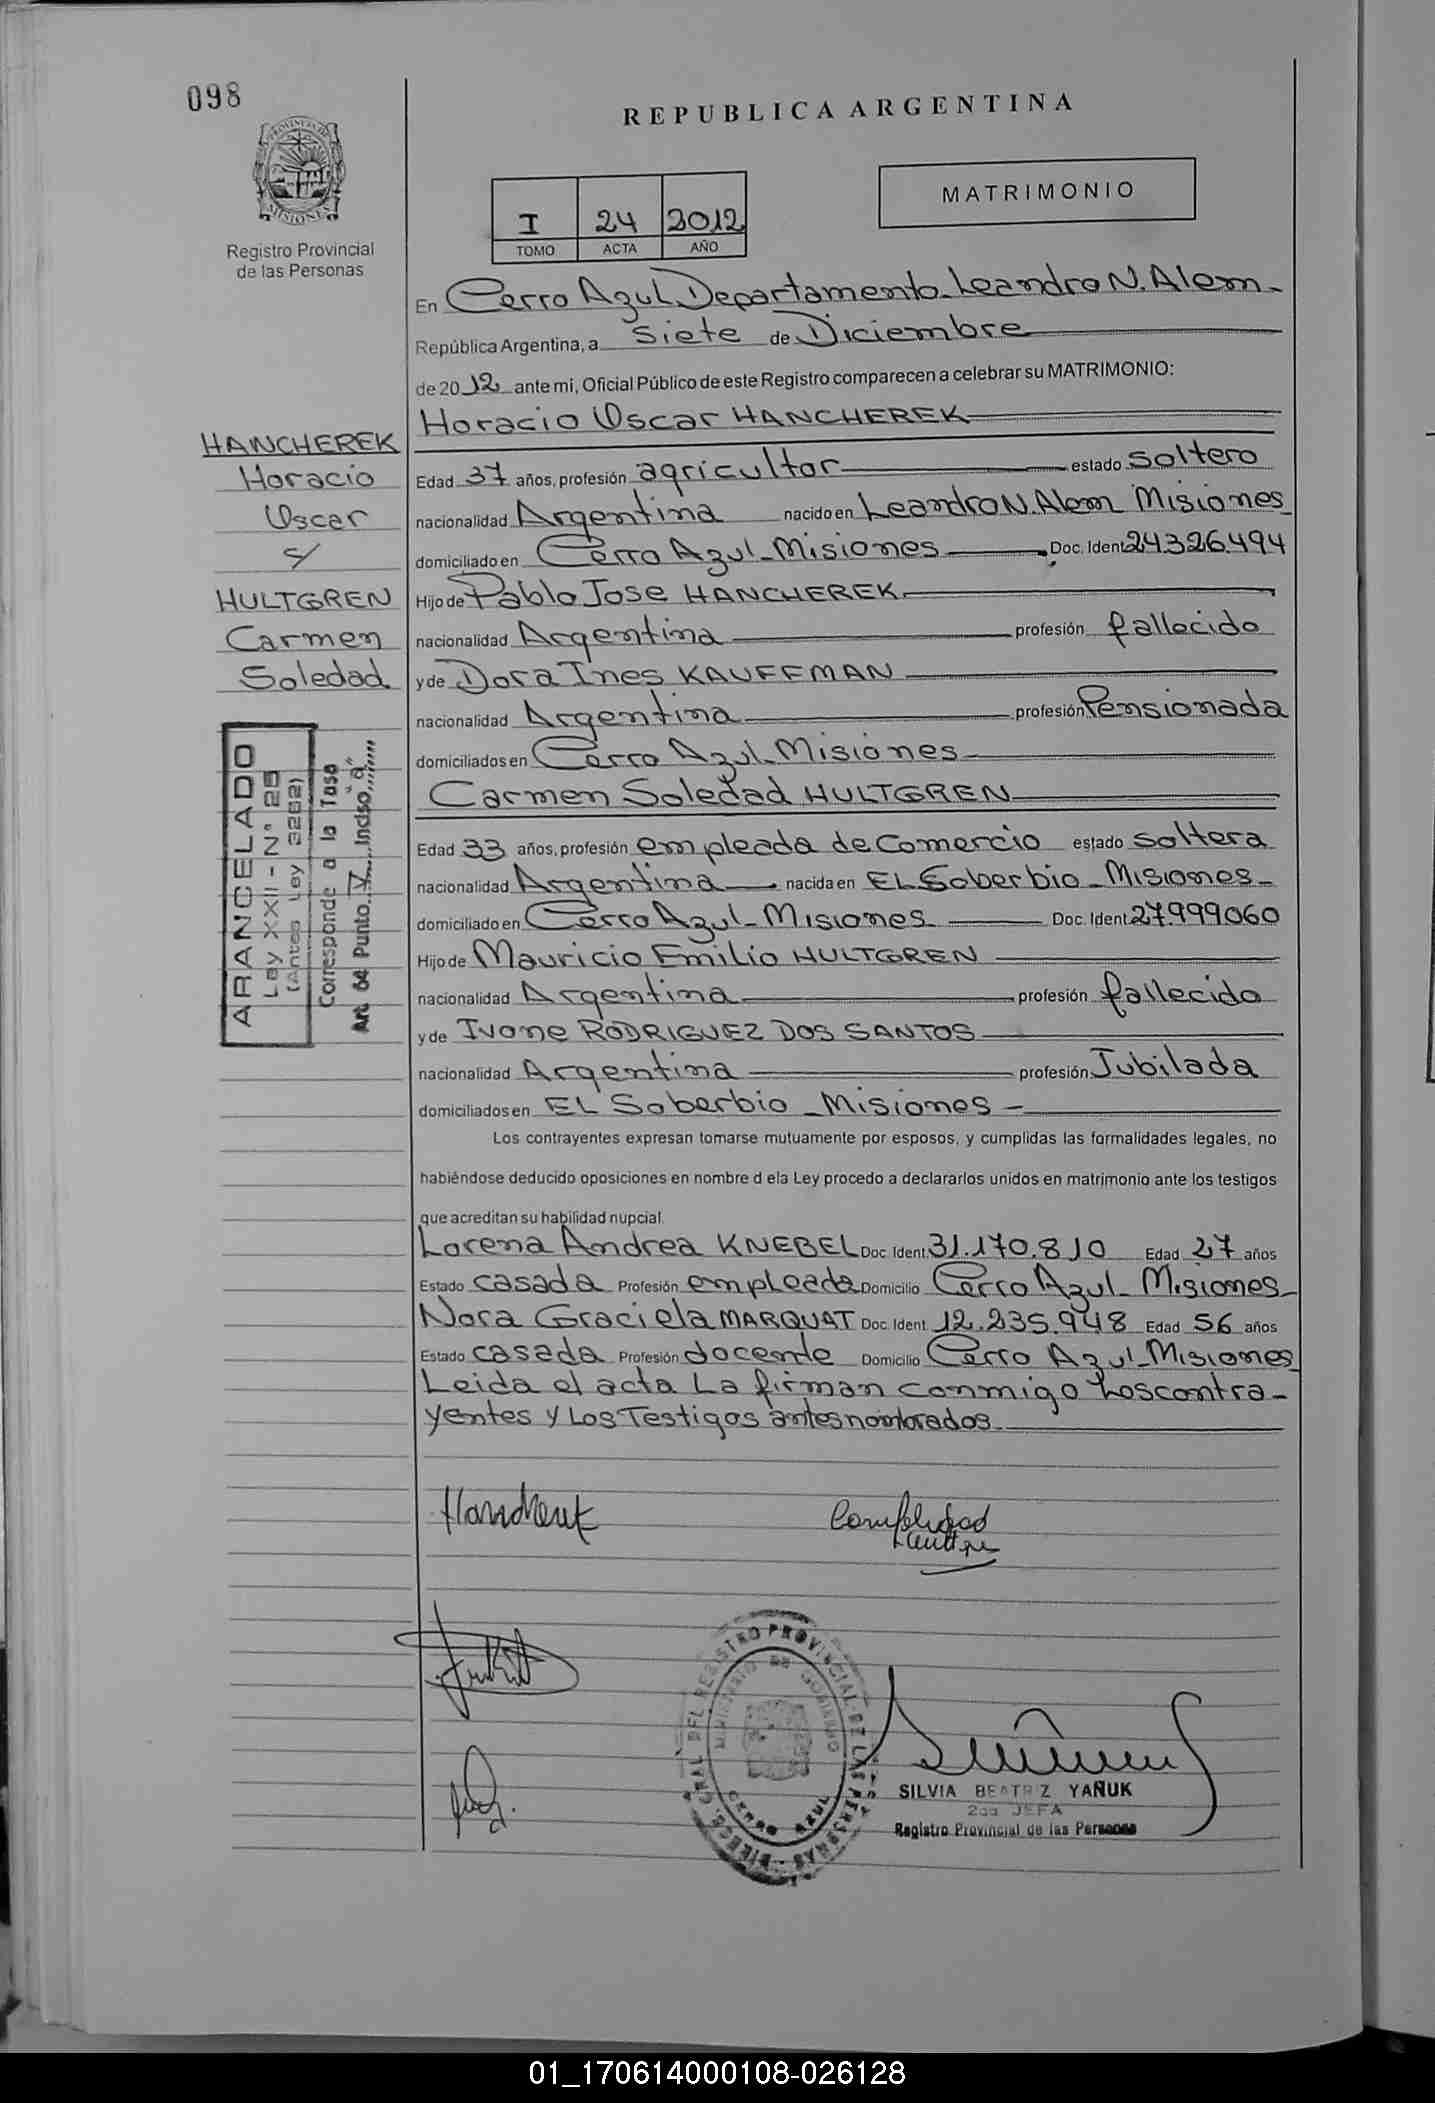 098
REPUBLICA ARGENTINA
PROVINCIA DE
MISIONES
Registro Provincial
de las Personas
MATRIMONIO
I 24 2012
TOMO ACTA AÑO
En Cerro Azul Departamento Leandro N. Alem-
República Argentina, a Siete de Diciembre
de 2012 ante mi, Oficial Público de este Registro comparecen a celebrar su MATRIMONIO:
Horacio Oscar HANCHEREK
HANCHEREK
Horacio
Oscar
c/
HULTGREN
Carmen
Soledad
Edad 37 años, profesión agricultor estado Soltero
nacionalidad Argentina nacido en Leandro N. Alem Misiones
domiciliado en Cerro Azul - Misiones Doc. Ident 24.326.494
Hijo de Pablo Jose HANCHEREK
nacionalidad Argentina profesión fallecido
y de Dora Ines KAUFFMAN
nacionalidad Argentina profesión Pensionada
domiciliados en Cerro Azul - Misiones
Carmen Soledad HULTGREN
ARANCELADO
Ley XXII - N° 25
(Antes Ley 3262)
Corresponde a la Tasa
Art. 64 Punto V Inciso "a"
Edad 33 años, profesión empleada de Comercio estado Soltera
nacionalidad Argentina nacida en EL Soberbio - Misiones -
domiciliado en Cerro Azul - Misiones Doc. Ident 27.999.060
Hijo de Mauricio Emilio HULTGREN
nacionalidad Argentina profesión fallecido
y de Ivone RODRIGUEZ DOS SANTOS
nacionalidad Argentina profesión Jubilada
domiciliados en EL Soberbio - Misiones -
Los contrayentes expresan tomarse mutuamente por esposos, y cumplidas las formalidades legales, no
habiéndose deducido oposiciones en nombre d ela Ley procedo a declararlos unidos en matrimonio ante los testigos
que acreditan su habilidad nupcial.
Lorena Andrea KNEBEL Doc. Ident. 31.170.810 Edad 27 años
Estado casada Profesión empleada Domicilio Cerro Azul - Misiones -
Nora Graciela MARQUAT Doc. Ident. 12.235.948 Edad 56 años
Estado casada Profesión docente Domicilio Cerro Azul - Misiones
Leida el acta La firman conmigo Los contra-
yentes y Los Testigos antes nombrados
DIRECC. GRAL. DEL REGISTRO PROVINCIAL DE LAS PERSONAS
MINISTERIO DE GOBIERNO
CERRO AZUL
SILVIA BEATRIZ YAÑUK
2da JEFA
Registro Provincial de las Personas
01_170614000108-026128